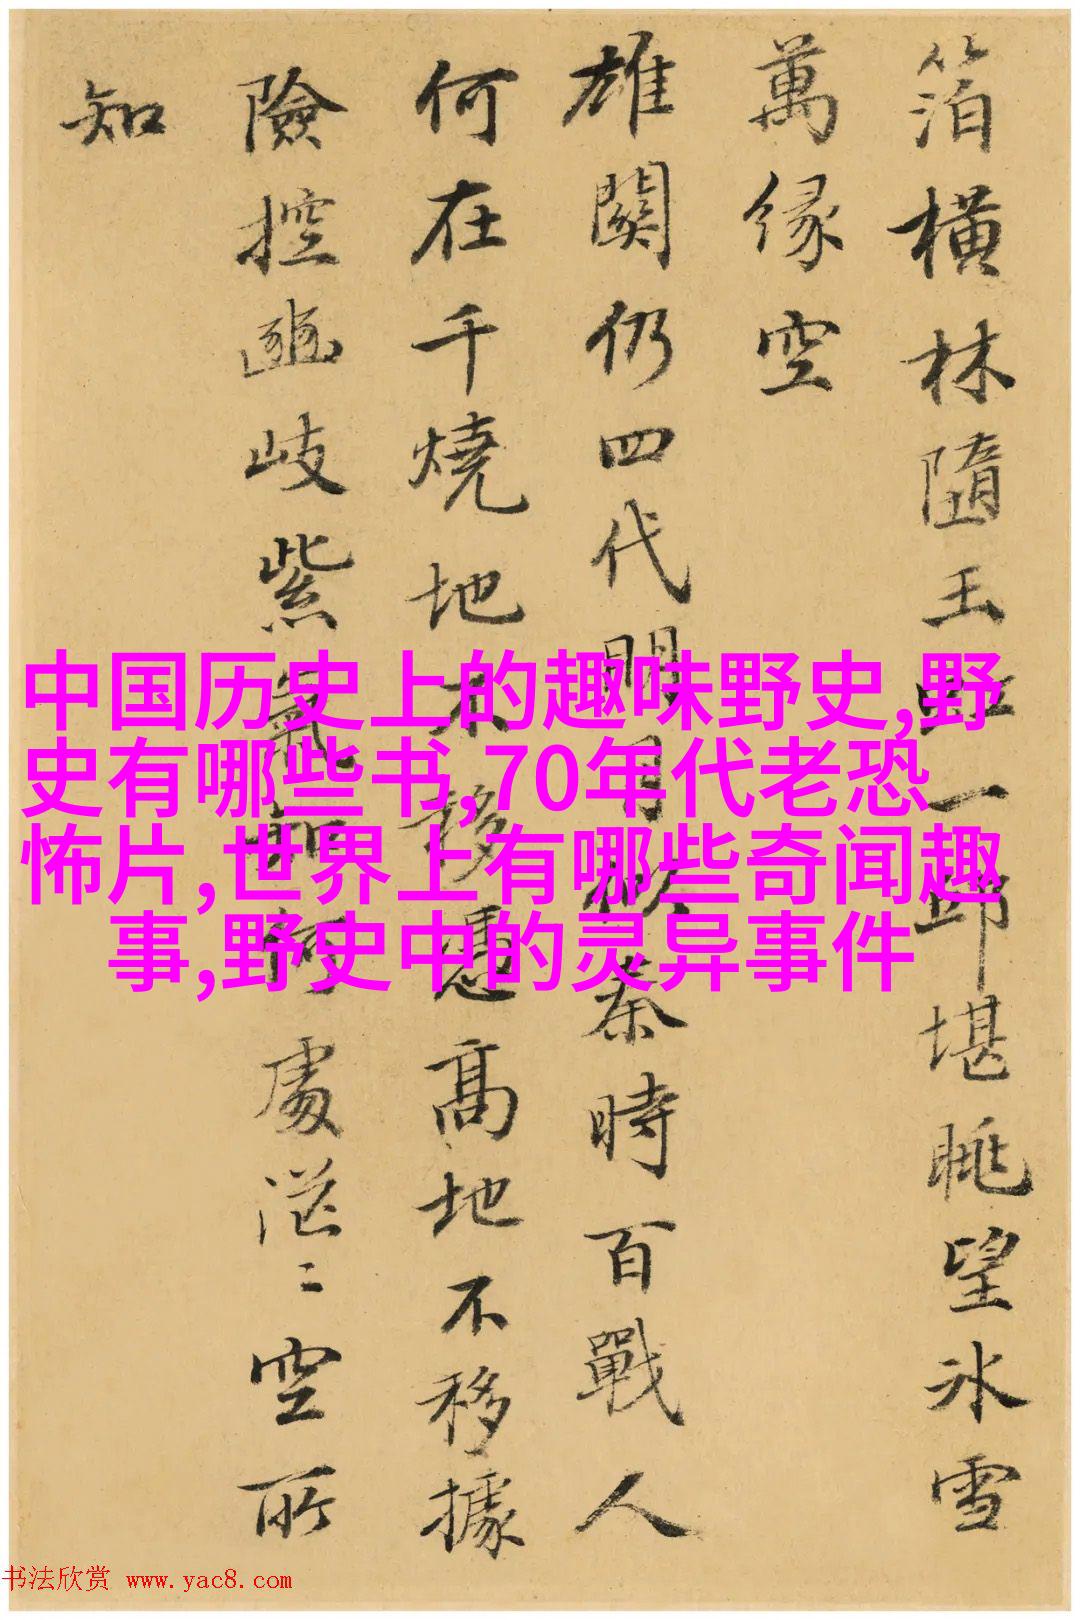 箔橫林隨玉虹一邱堪眺望氷雪
萬緣空
雄關仍四代明月秦時百戰人
何在千燒地不移憑高地不移據
險控豳岐紫氣何處茫〻空所
知
中国历史上的趣味野史,野
史有哪些书,70年代老恐
怖片,世界上有哪些奇闻趣
事,野史中的灵异事件
书法欣赏 www.yac8.com